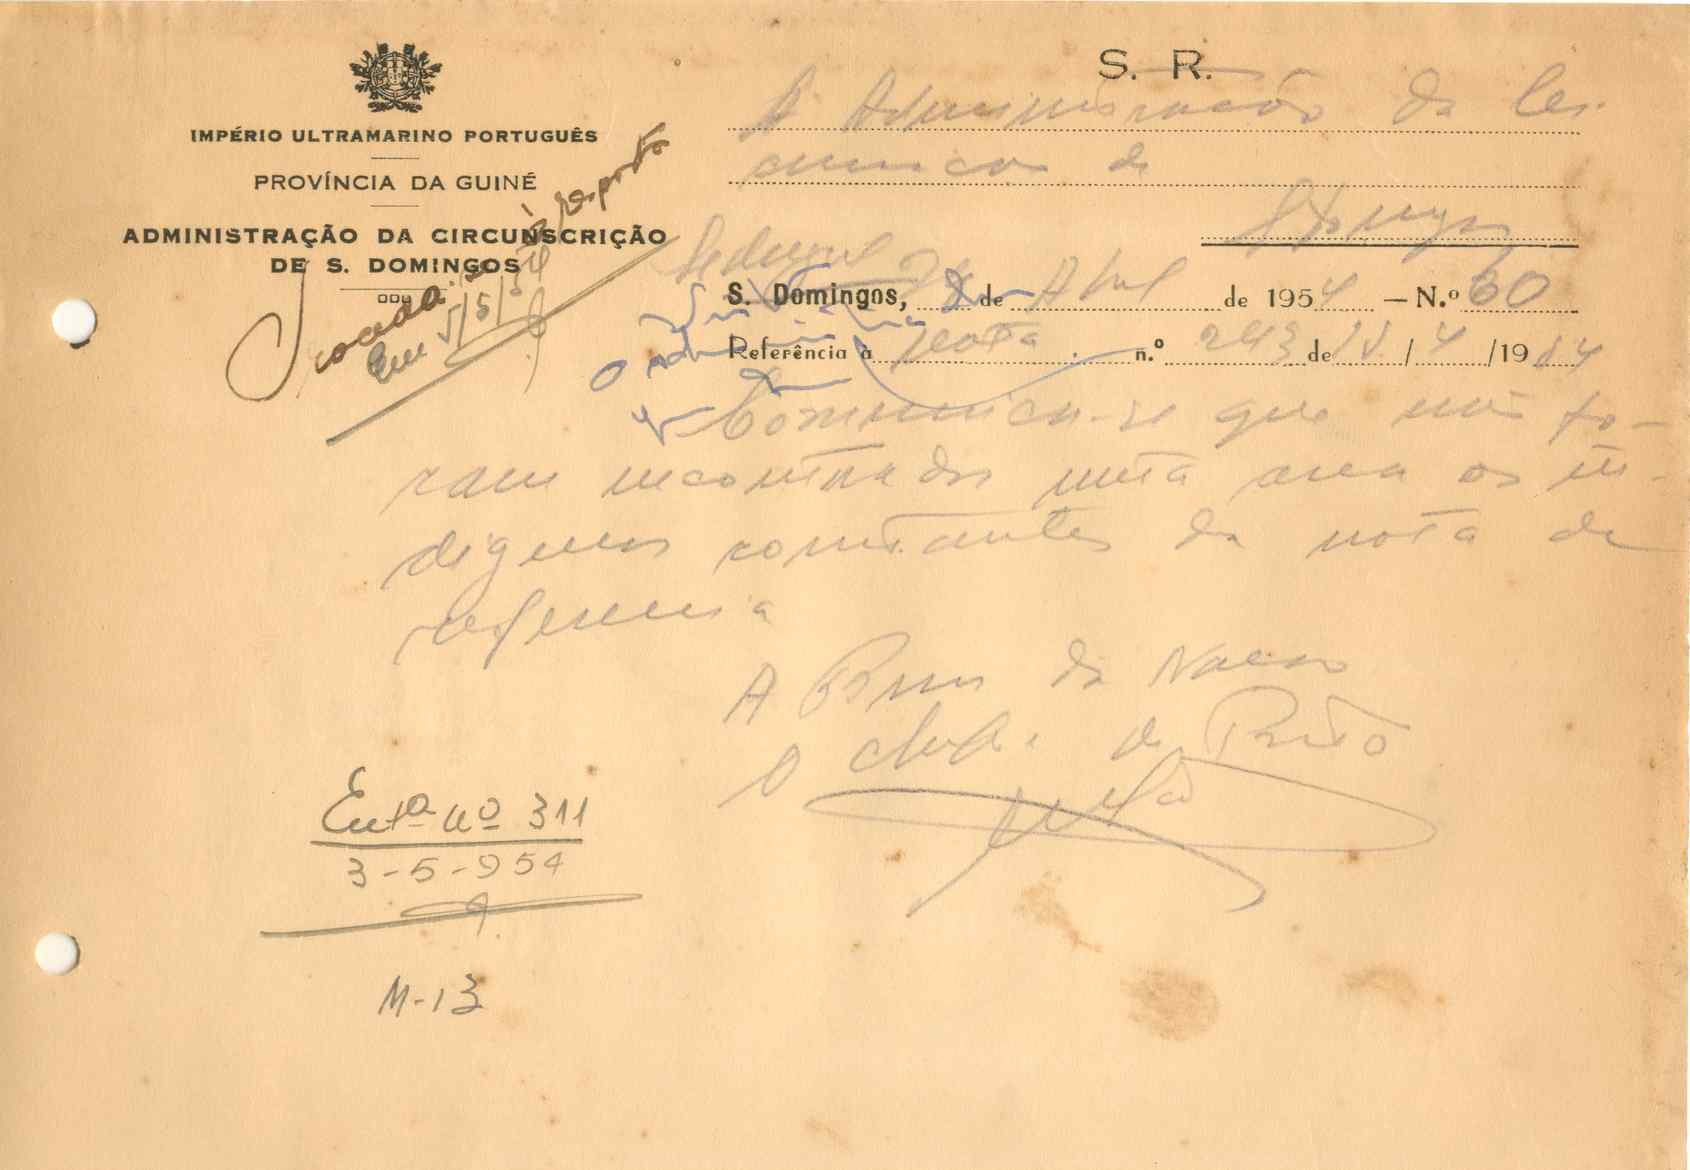 IMPÉRIO ULTRAMARINO PORTUGUÊS
PROVÍNCIA DA GUINÉ
ADMINISTRAÇÃO DA CIRCUNSCRIÇÃO
DE S. DOMINGOS
S. R.
A Administração da Cir-
de
S. Domingos, de Abril de 1954 — N.º 60
Referência à nota n.º 243 de / 4 / 1954
O Admin
Comunica-se que não fo-
ram encontrados nesta area os in-
digenas constantes da nota de
referencia
A Bem da Nação
O chefe de Posto
Entª nº 311
3-5-954
M-13
Em 5/5/54